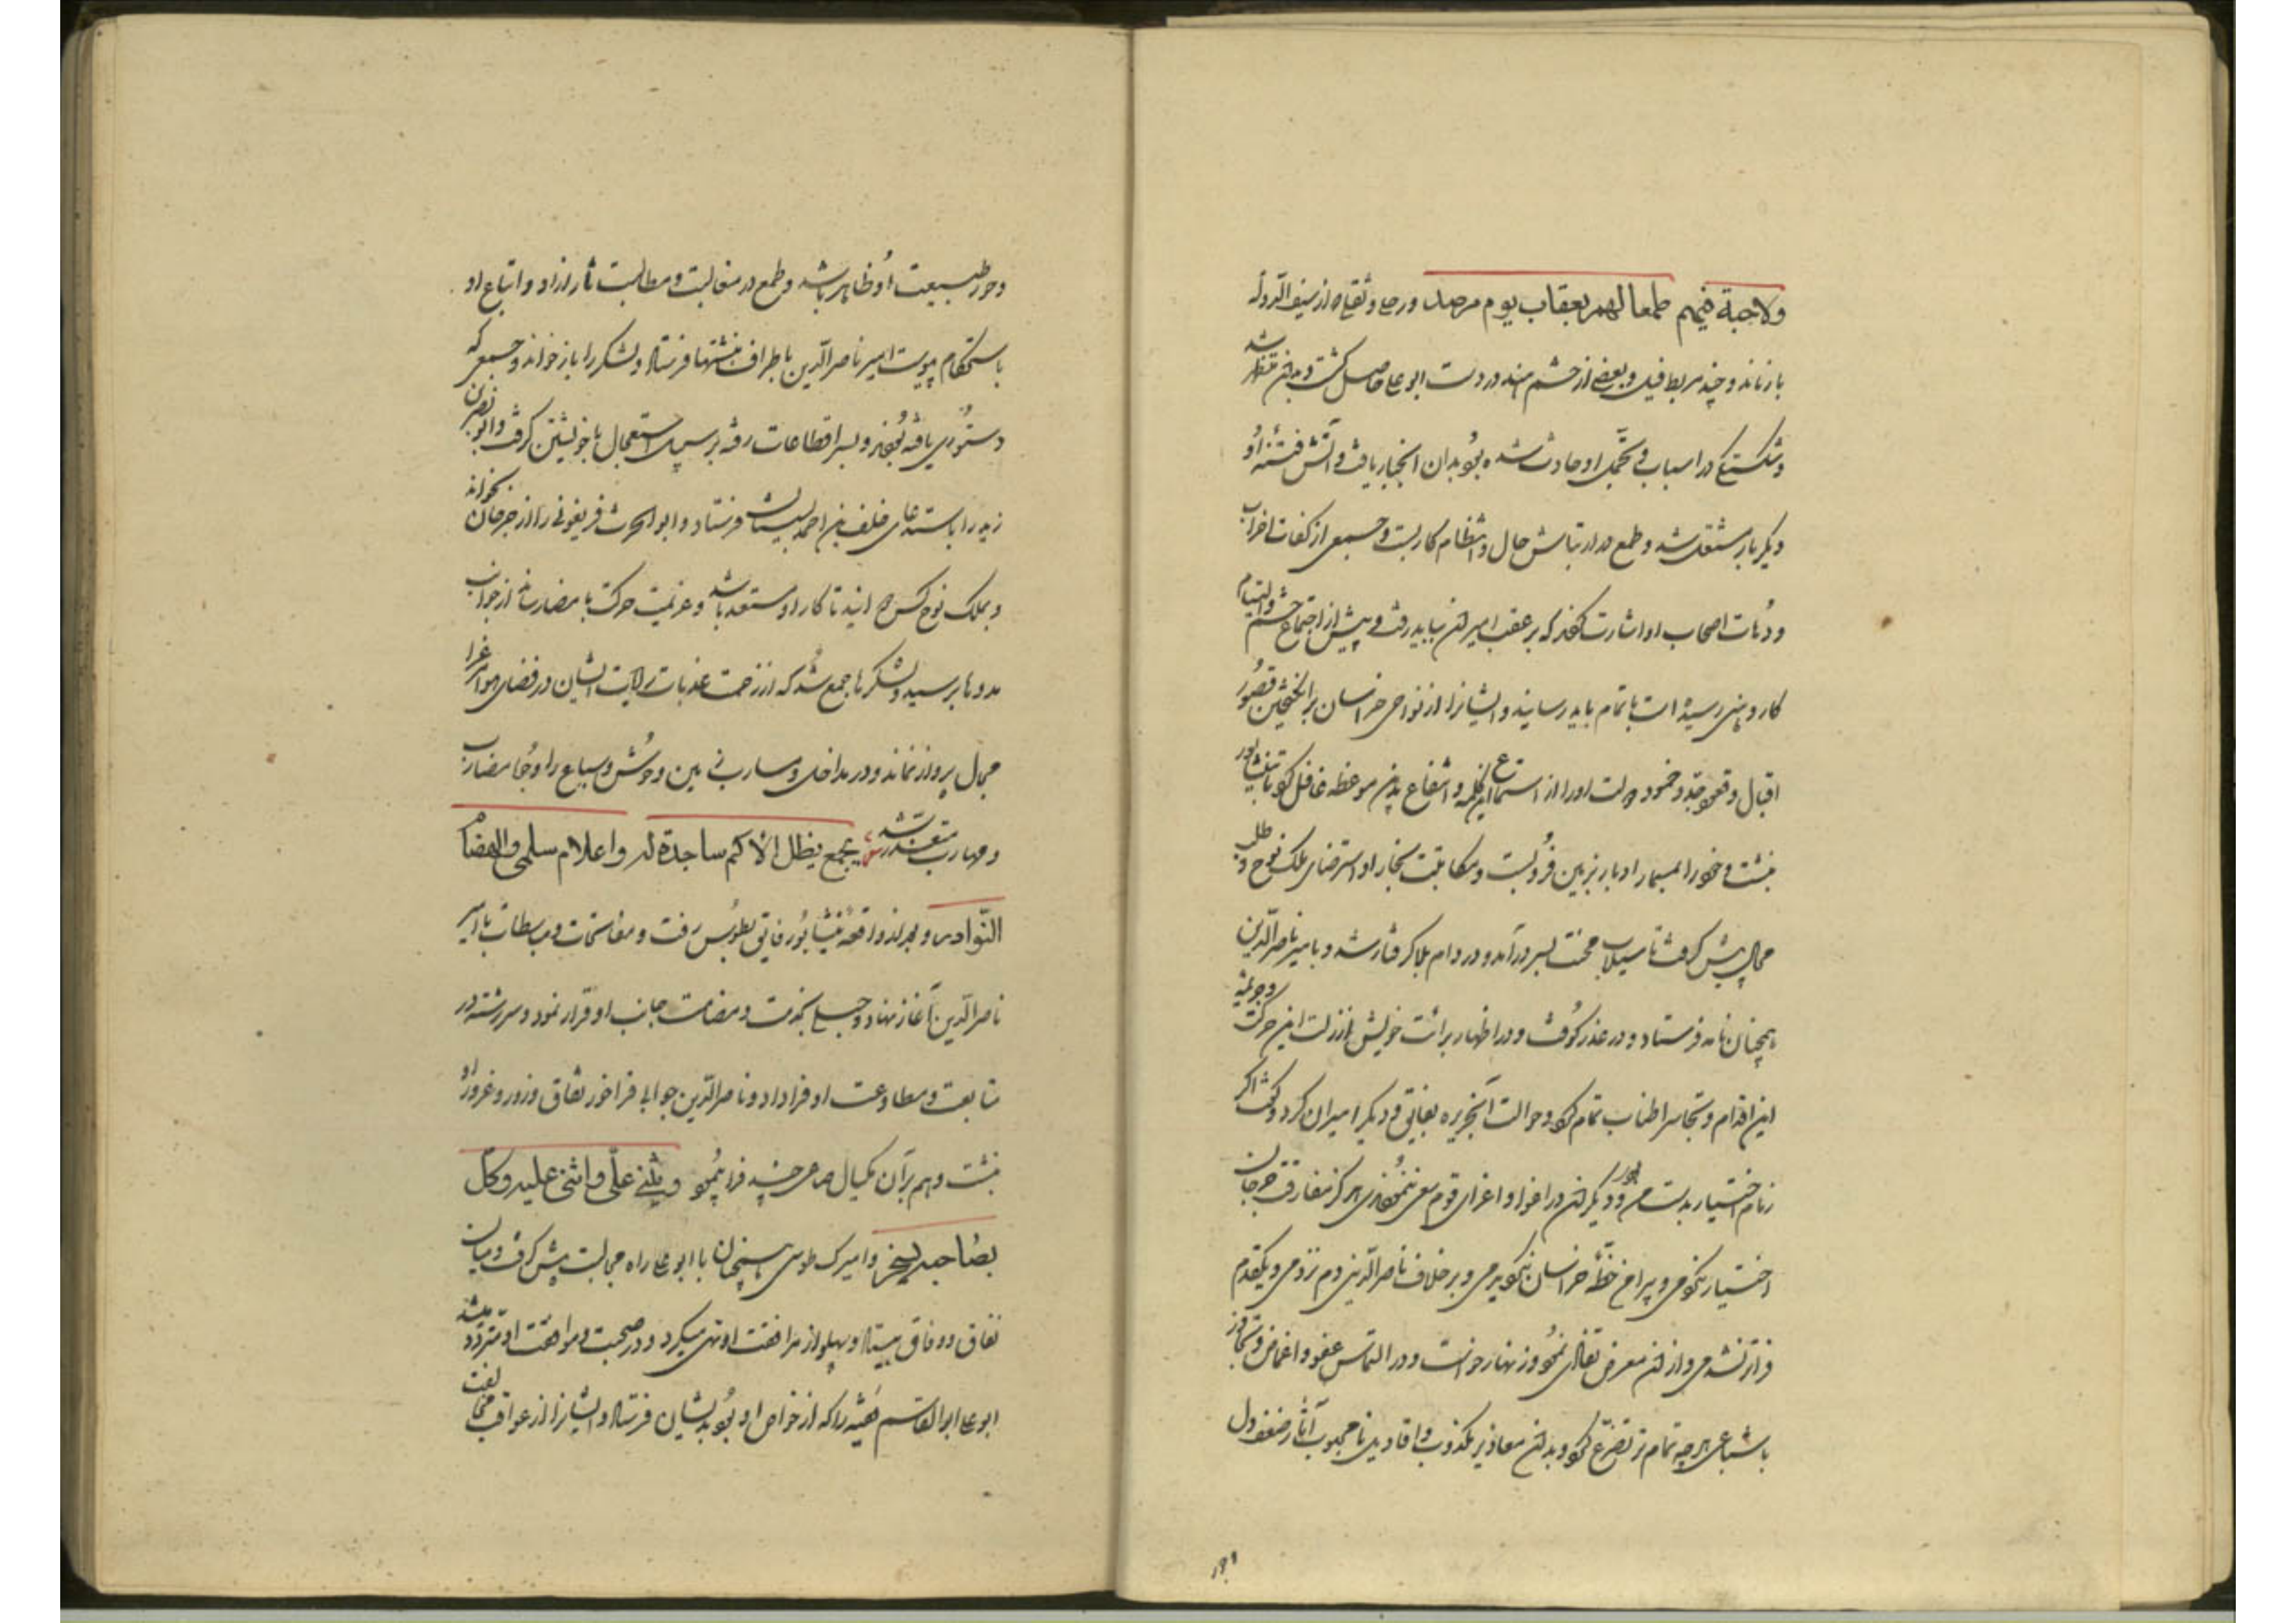 ولاجبة فيهم طمعا لهم بعقاب يوم مرصد ورحا وثقاه از سیف الدوله
باز ماند و چند مربط فیل و بعضی از حشم هند در دست ابو علی حاصل گشت و بدان متظاهر شد
و شکستی که در اسباب و تجمل او حادث شده بود بدان انجبار یافت و آتش فتنه او
دیگر بار مشتعل شد و طمع در ارتیاش حال و انتظام کار بست و جمعی از کفات اضراب
و دهات اصحاب او اشارت کردند که بر عقب امیران بباید رفت و پیش از اجتماع حشم و التیام
کار وهنی رسیده است باتمام باید رسانید و ایشانرا از نواحی خراسان برانگیختن قصور
اقبال و قعود جد و خمود دولت او را از استماع این کلمه و انتفاع بدین موعظه غافل کرد تا بنیشابور
بنشست و خود را بمسمار ادبار بر زمین فرو بست و مکاتبت بخارا و استرضای ملک نوح و طلب
محال پیش گرفت تا سیلاب محنت بسر درآمد و در دام بلا گرفتار شد و بامیر ناصر الدین
همچنان نامه فرستاد و در عذر کوفت و در اظهار برائت خویش از زلت این حرکت و جریمه
این اقدام و تجاسر اطناب تمام کرد و حوالت آن جریره بفایق و دیگر امیران کرد و گفت اگر
زمام اختیار بدست من بودی و دیگران در اغوا و اغرای قوم سعی ننمودندی هرگز مفارقت جرجان
اختیار نکردمی و پیرامن خطه خراسان نگردیدمی و بر خلاف ناصر الدین دم نزدمی و یکقدم
فراتر نشدمی و از آن معرض تفادی نمود و زنهار خواست و در التماس عفو و اغماض و تجاوز
باشباعی هرچه تمام تر تضرع کرد و بدان معاذیر مکذوب و اقاویل نامحبوب آثار ضعف دل
و خور طبیعت او ظاهر شد و طمع در مغالبت و مطالبت ثار ازو و اتباع او
باستحکام پیوست امیر ناصر الدین باطراف نبشتها فرستاد و لشکر را باز خواند و جمعی که
دستوری یافته بودند و بسر اقطاعات رفته بر سبیل استعجال با خویشتن گرفت و ابو نصر بن
زید را باستدعای خلف بن احمد بسیستان فرستاد و ابو الحرث فریغونی را از جرجان بخواند
و بملک نوح کس دوانید تا کار او مستعد باشد و عزیمت حرکت بامضا رساند از جوانب
مددها برسید و لشکرها جمع شد که از زحمت عذبات رایات ایشان در فضای هوا مر غراب
مجال پرواز نماند و در مداخل و مسارب زمین وحوش و سباع را وجا مضارب
و مهارب متعذر شد بجمع یظل الأکم ساجدة له واعلام سلمی والهضاب
النوادر و بعد از واقعه نیشابور فایق بطوس رفت و مفاتحات و مباسطات با امیر
ناصر الدین آغاز نهاد و جیب بخدمت و مضامت جانب او فرا نمود و سر رشته در
متابعت و مطاوعت او فرا داد و ناصر الدین جوابی فراخور نفاق و زور و غرور او
نبشت و هم برآن مکیال صاعی چند فرا پیمود ویثنی علی واثنی علیه وکل
بصاحبه یسخر و امیرک طوسی همچنان با ابو علی راه مجالبت پیش گرفت و میان
نفاق و وفاق بیستاد و پهلو از مرافقت او تهی میکرد و در صحبت و موافقت او متردد میشد
ابو علی ابو القاسم فقیه را که از خواص او بود بدیشان فرستاد و ایشانرا از عواقب مخالفت